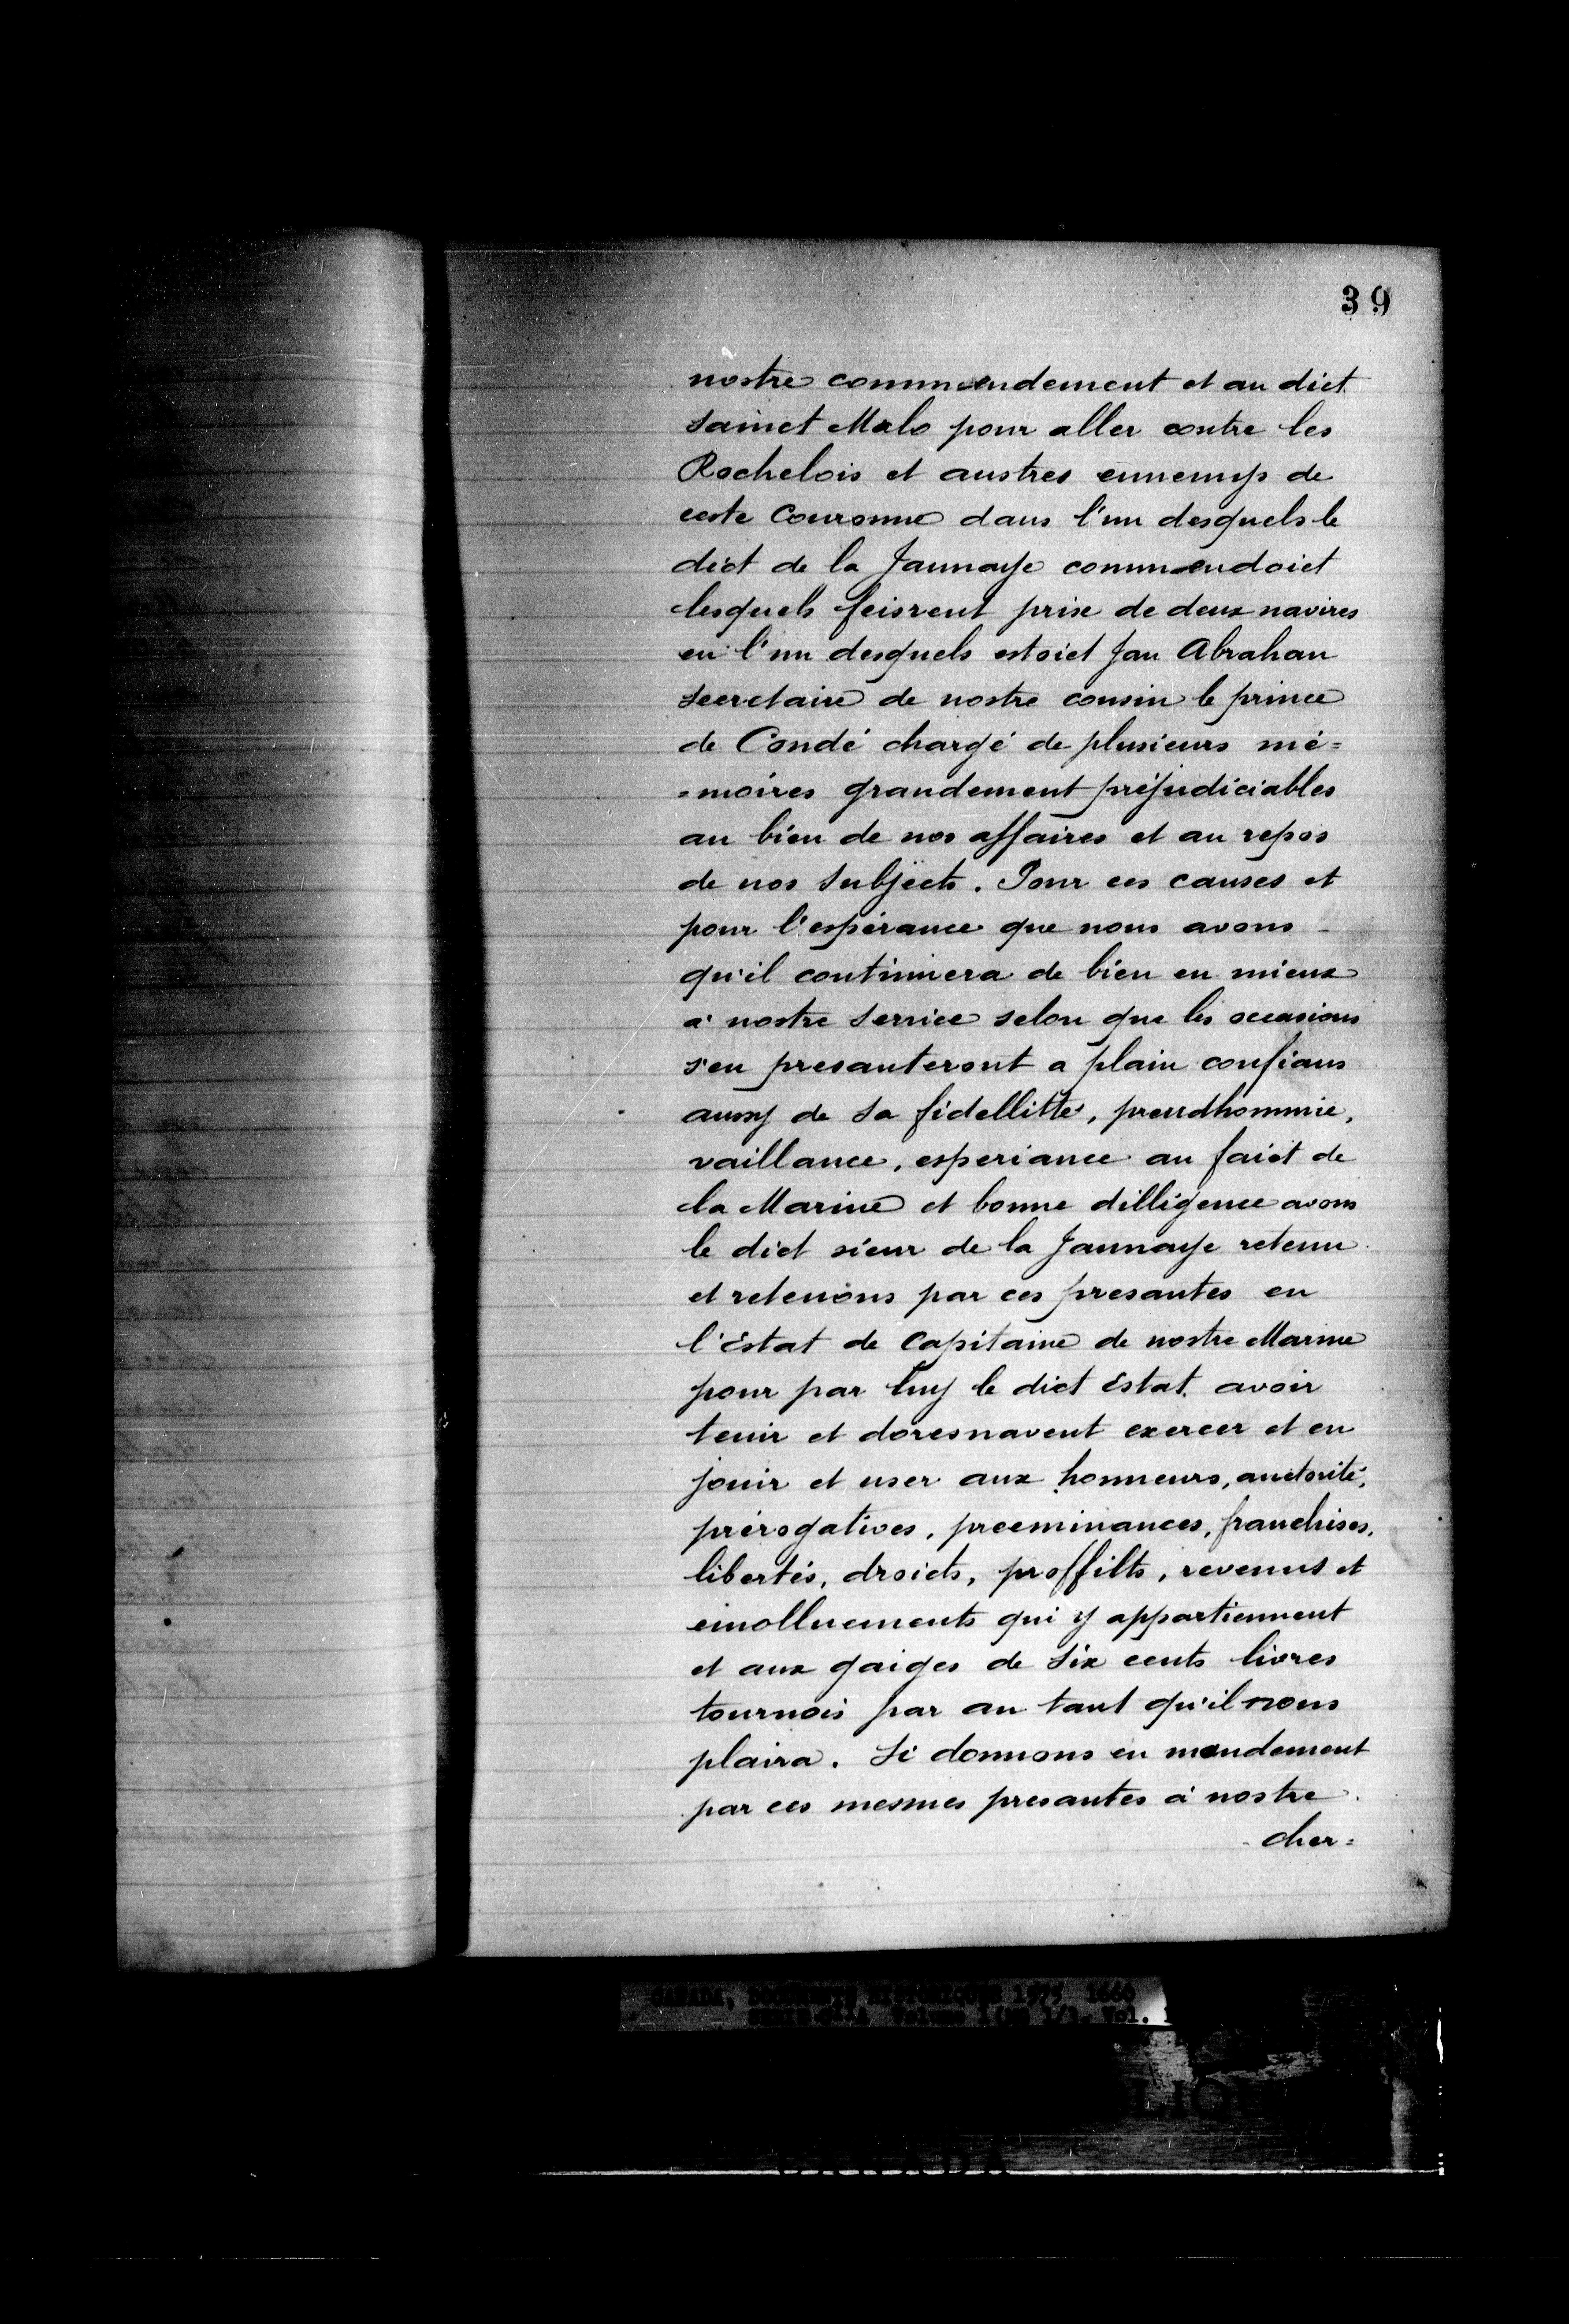 39
nostre commendement et au dict
Sainct Malo pour aller contre les
Rochelois et austres ennemys de
ceste Couronne dans l'un desquels le
dict de la Jaunaye commendoict
lesquels feisrent prise de deux navires
en l'un desquels estoict Jan Abrahan
Secretaire de nostre cousin le prince
de Condé chargé de plusieurs mé=
=moires grandement préjudiciables
au bien de nos affaires et au repos
de nos Subjects. Pour ces causes et
pour l'espérance que nous avons
qu'il continuera de bien en mieux
à nostre Service selon que les occasions
s'en presanteront a plain confians
aussy de Sa fidellitté, preudhommie,
vaillance, esperiance au faict de
la Marine et bonne dilligence avons
le dict sieur de la Jaunaye retenu
et retenons par ces presantes en
l'Estat de Capitaine de nostre Marine
pour par luy le dict Estat avoir
tenir et doresnavent exercer et en
jouir et user aux honneurs, auctorité,
prérogatives, preeminances, franchises,
libertés, droicts, proffilts, revenus et
émolluements qui y appartiennent
et aux gaiges de Six cents livres
tournois par an tant qu'il nous
plaira. Si donnons en mandement
par ces mesmes presantes à nostre
cher=
CANADA, DOCUMENTS HISTORIQUES 1575 1660